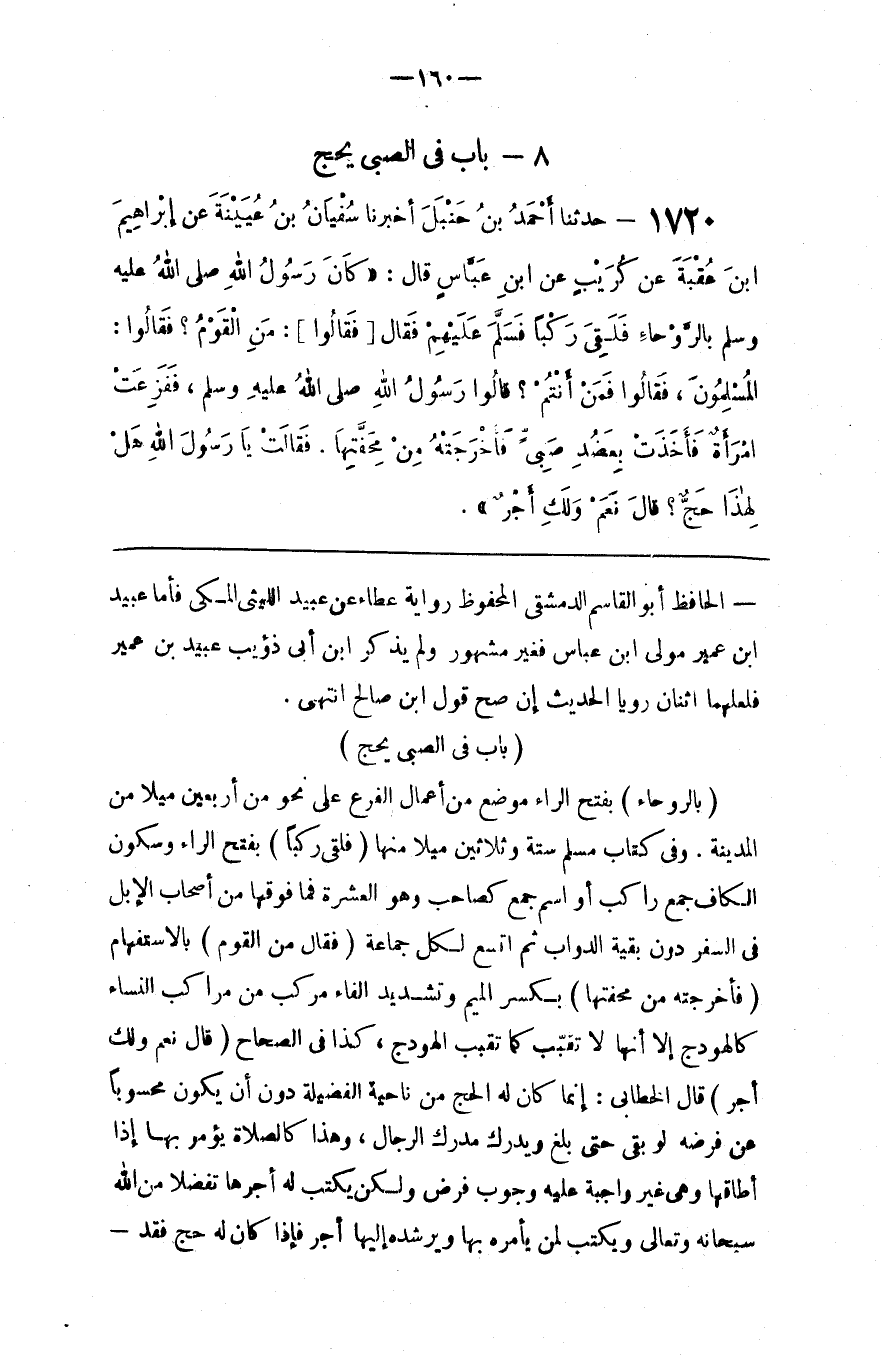 —١٦٠—
٨ — باب فى الصبى يحج
١٧٢٠ — حدثنا أَحْمَدُ بنُ حَنْبَلَ أخبرنا سُفْيَانُ بنُ عُيَيْنَةَ عن إِبْرَاهِيمَ
ابنَ عُقْبَةَ عن كُرَيْبٍ عن ابنِ عَبَّاسٍ قال : « كَانَ رَسُولُ اللهِ صلى اللهُ عليه
وسلم بالرَّوْحاءِ فَلَقِىَ رَكْبًا فَسَلَّمَ عَلَيْهِمْ فَقال [ فَقالُوا ] : مَنِ الْقَوْمُ ؟ فَقالُوا :
المُسْلِمُونَ ، فَقالُوا فَمَنْ أَنْتُمْ ؟ قالُوا رَسُولُ اللهِ صلى اللهُ عليهِ وسلم ، فَفَزِعَتْ
امْرَأَةٌ فَأَخَذَتْ بِعَضُدِ صَبِىٍّ فَأَخْرَجَتْهُ مِنْ مِحَفَّتِهَا . فَقالَتْ يَا رَسُولَ اللهِ هَلْ
لِهٰذَا حَجٌّ ؟ قالَ نَعَمْ وَلَكِ أَجْرٌ » .
— الحافظ أبو القاسم الدمشقى المحفوظ رواية عطاء عن عبيد الليثى المـكى فأما عبيد
ابن عمير مولى ابن عباس فغير مشهور ولم يذكر ابن أبى ذؤيب عبيد بن عمير
فلعلهما اثنان رويا الحديث إن صح قول ابن صالح انتهى .
( باب فى الصبى يحج )
( بالروحاء ) بفتح الراء موضع من أعمال الفرع على نحو من أربعين ميلا من
المدينة . وفى كتاب مسلم ستة وثلاثين ميلا منها ( فلقى ركبًا ) بفتح الراء وسكون
الـكاف جمع راكب أو اسم جمع كصاحب وهو العشرة فما فوقها من أصحاب الإبل
فى السفر دون بقية الدواب ثم اتسع لـكل جماعة ( فقال من القوم ) بالاستفهام
( فأخرجته من محفتها ) بـكسر الميم وتشـديد الفاء مركب من مراكب النساء
كالهودج إلا أنها لا تقبّب كما تقبب الهودج ، كذا فى الصحاح ( قال نعم ولك
أجر ) قال الخطابى : إنما كان له الحج من ناحية الفضيلة دون أن يكون محسوبًا
عن فرضه لو بقى حتى بلغ ويدرك مدرك الرجال ، وهذا كالصلاة يؤمر بهـا إذا
أطاقها وهى غير واجبة عليه وجوب فرض ولـكن يكتب له أجرها تفضلا من الله
سبحانه وتعالى ويكتب لمن يأمره بها ويرشده إليها أجر فإذا كان له حج فقد —